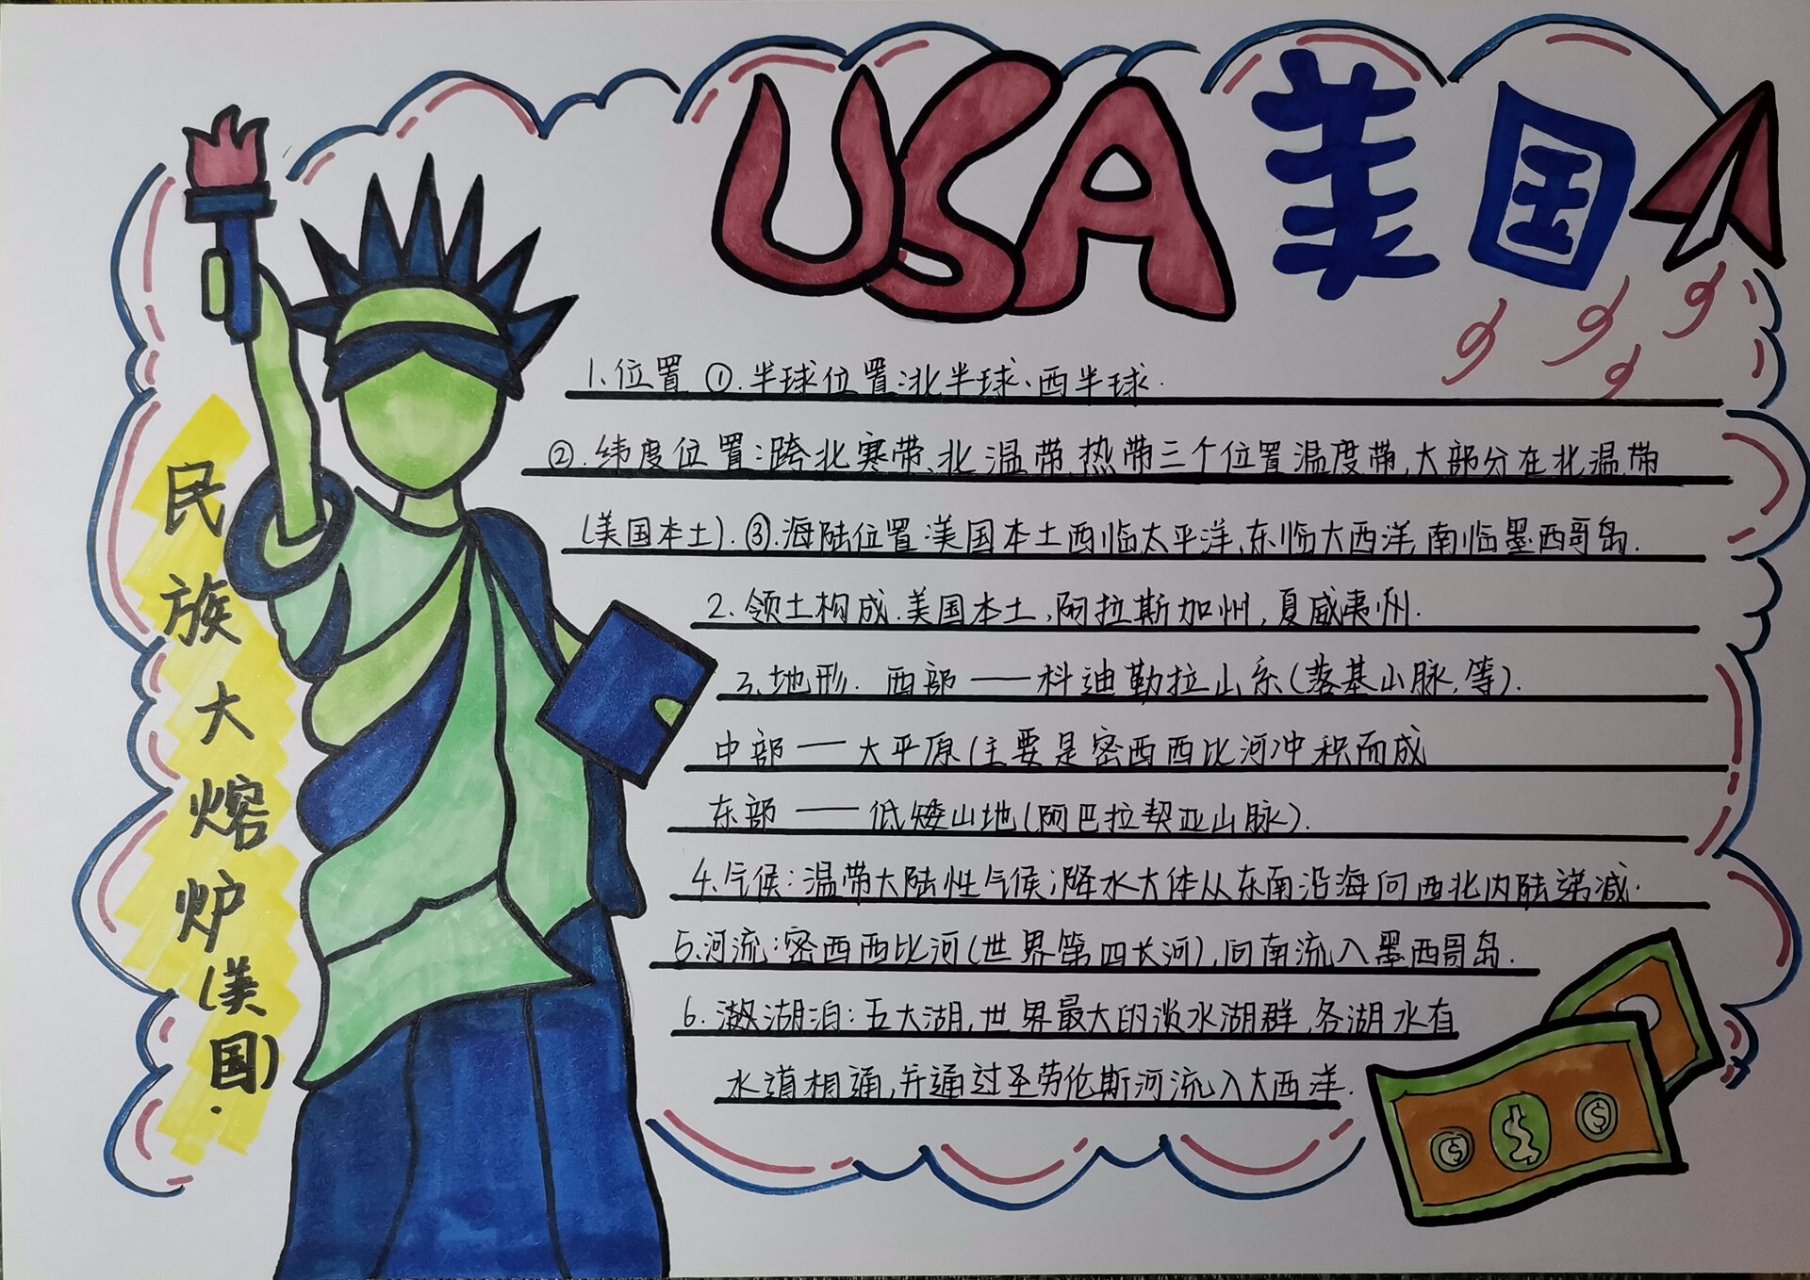 USA美国
1.位置 ①.半球位置:北半球、西半球.
②.纬度位置:跨北寒带、北温带、热带三个位置温度带,大部分在北温带
(美国本土).③.海陆位置:美国本土西临太平洋,东临大西洋,南临墨西哥岛.
2.领土构成.美国本土,阿拉斯加州,夏威夷州.
3.地形. 西部——科迪勒拉山系(落基山脉,等).
中部——大平原(主要是密西西比河冲积而成
东部——低矮山地(阿巴拉契亚山脉).
4.气候:温带大陆性气候;降水大体从东南沿海向西北内陆递减.
5.河流:密西西比河(世界第四长河),向南流入墨西哥岛.
6.湖泊:五大湖,世界最大的淡水湖群,各湖水有
水道相通,并通过圣劳伦斯河流入大西洋.
民族大熔炉(美国).